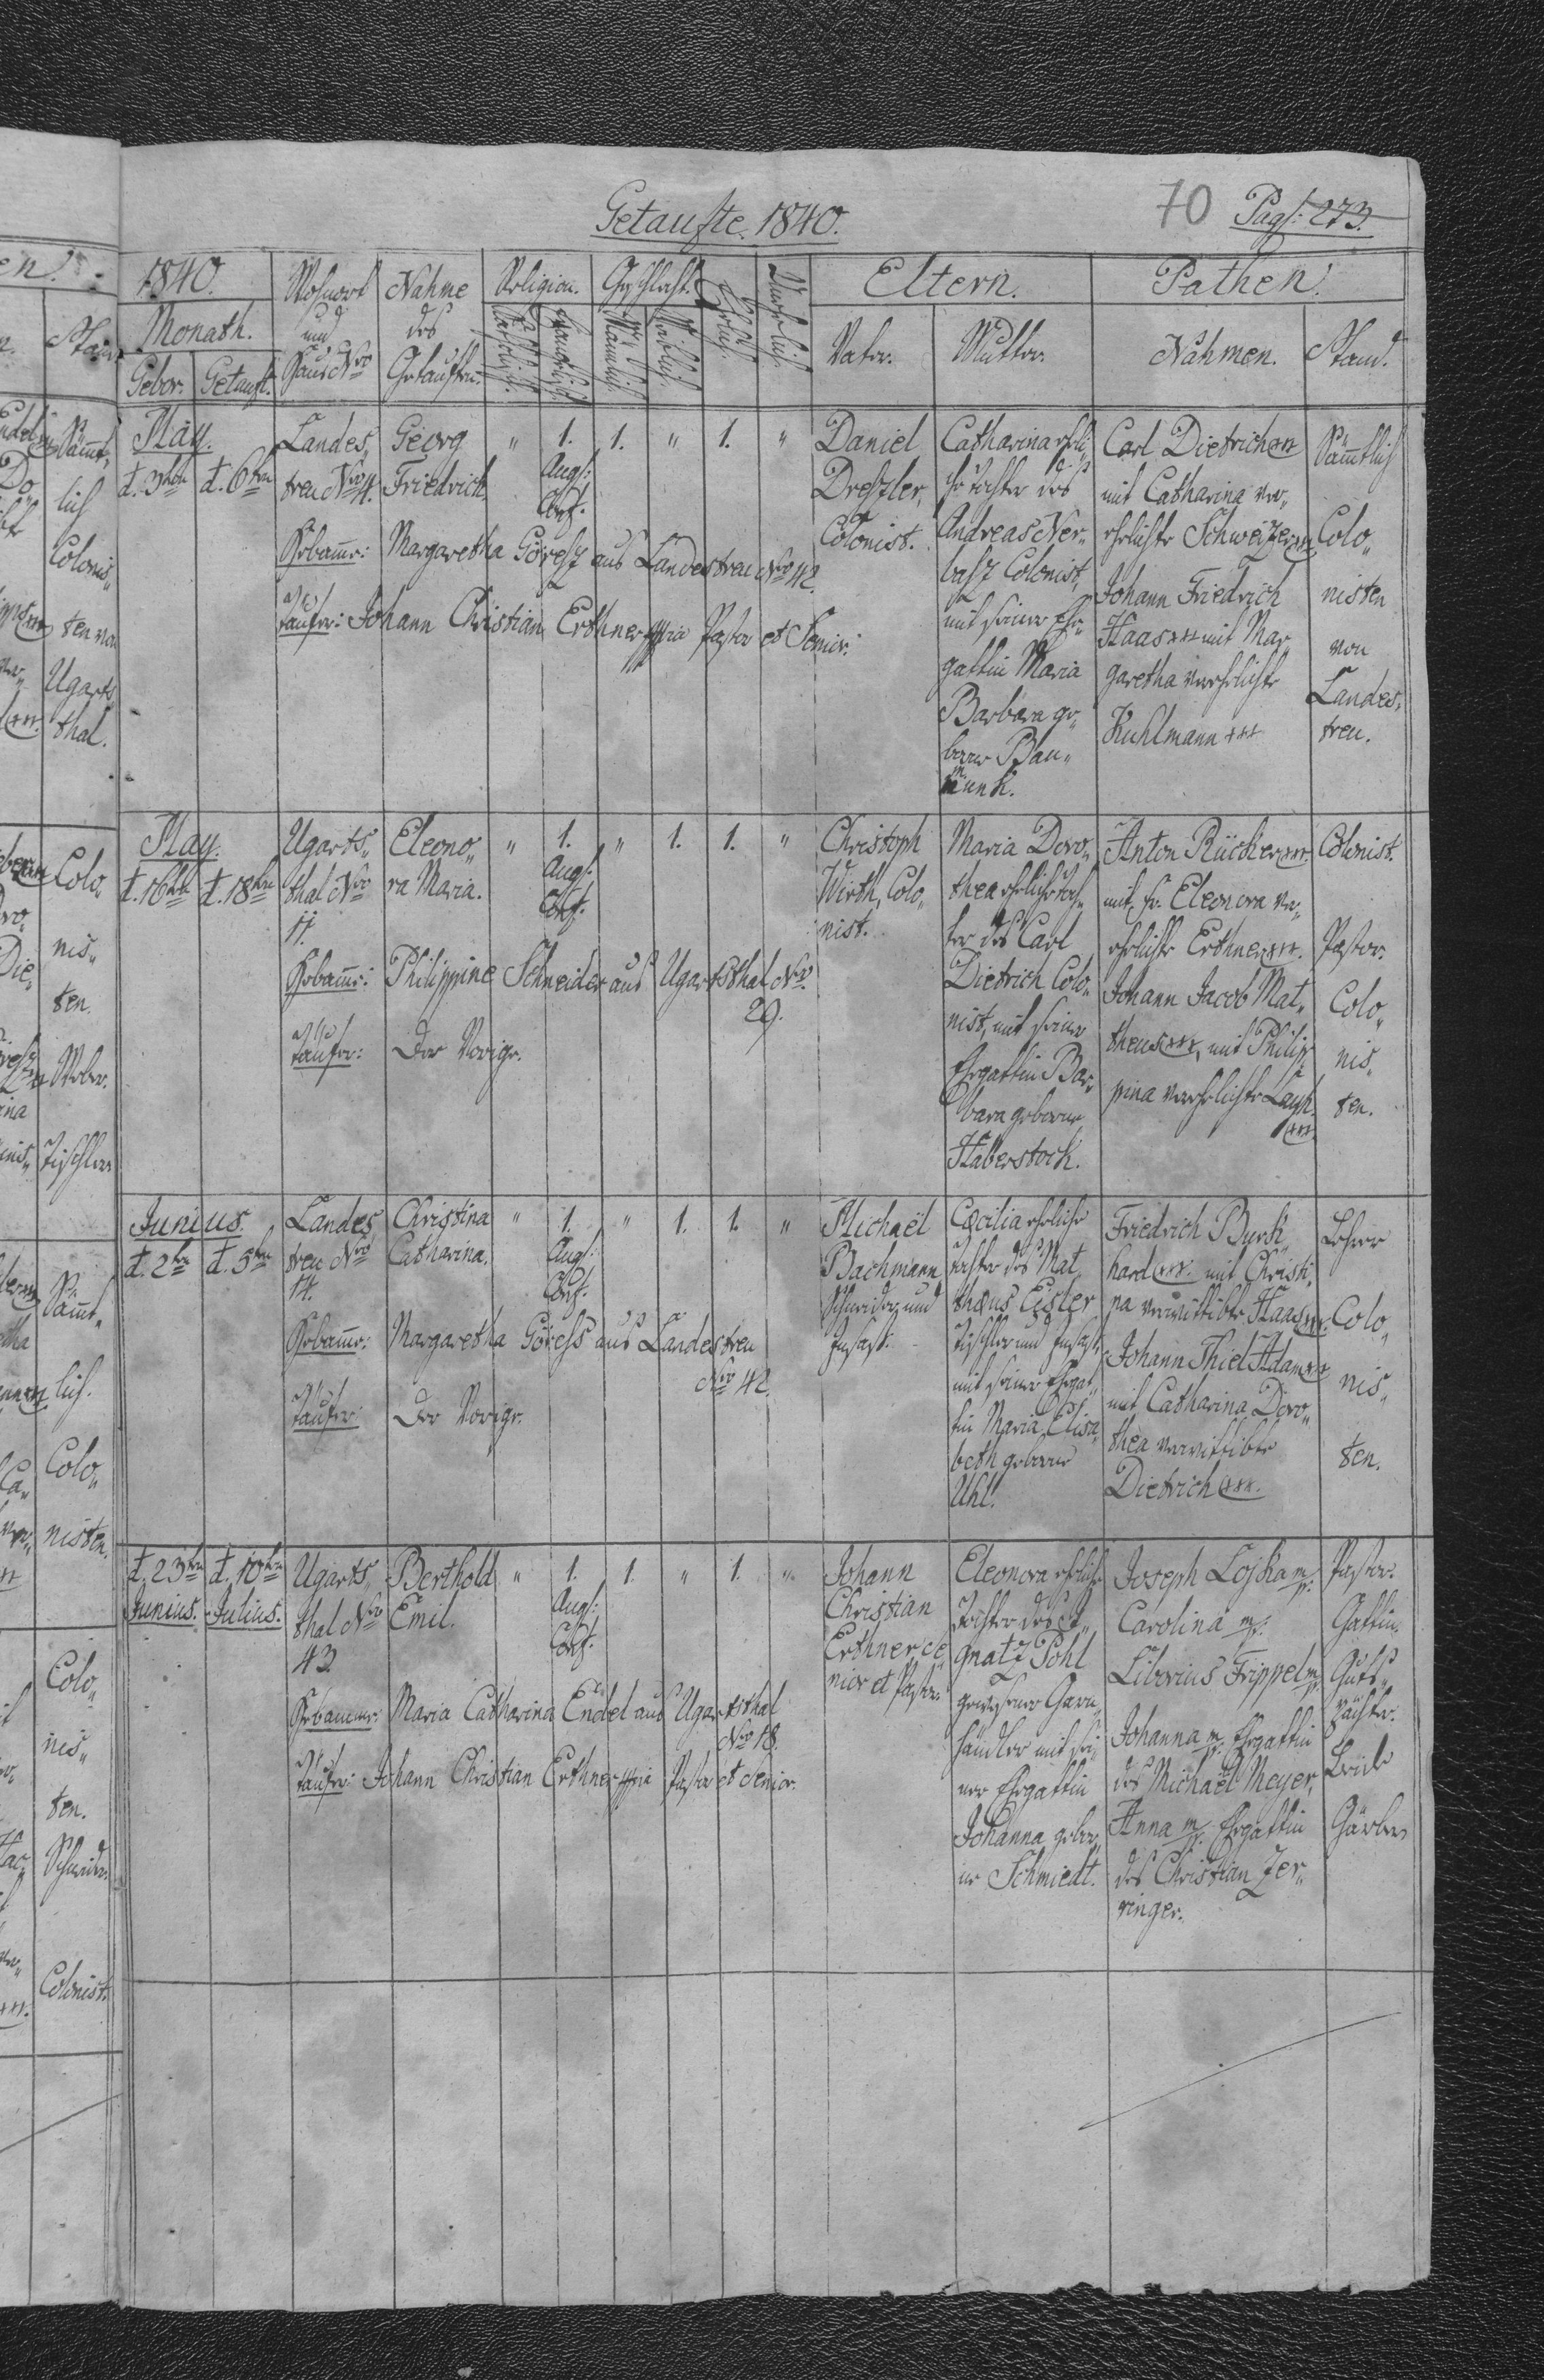 Getaufte 1840.
70 Pag: 273.
1840.
Monath.
Gebor: Getauft.
Wohnort und Haus Nro
Nahme des Getauften.
Religion.
Catholisch. Evangelisch.
Geschlecht.
Männlich. Weiblich.
Ehelich.
Unehelich.
Eltern.
Vater. Mutter.
Pathen.
Nahmen. Stand.
May.
d. 3ten d. 6ten
Landes„
treu Nro 4.
Georg
Friedrich
" 1. 1. " 1. "
Augs:
Conf.
Daniel
Dreszler,
Colonist.
Catharina eheli„
che Tochter des
Andreas Ner„
basz Colonist,
mit seiner Ehe„
gattin Maria
Barbara ge„
borne Bau„
munk.
Carl Dietrich+++
mit Catharina ver„
ehelichte Schweizer+++
Johann Friedrich
Haas+++ mit Mar„
garetha verehelichte
Kuhlmann+++
Sämmtlich
Colo„
nisten
von
Landes„
treu.
Hebamme: Margaretha Göresz aus Landestreu Nro 42.
Taufer: Johann Christian Erthner mpria Pastor et Senior.
May.
d. 16ten d. 18ten
Ugarts„
thal Nro
11.
Eleono„
ra Maria.
" 1. " 1. 1. "
Augs:
Conf.
Christoph
Wirth, Colo„
nist.
Maria Doro„
thea eheliche Toch„
ter des Carl
Dietrich Colo„
nist, mit seiner
Ehegattin Bar„
bara geborne
Haberstock.
Anton Rücker+++
mit Fr. Eleonora ver„
ehelichte Erthner+++.
Johann Jacob Mat„
theus+++, mit Philip„
pina verehelichte Lauf
+++
Colonist.
Pastor.
Colo„
nis„
ten.
Hebamme: Philippine Schneider aus Ugartsthal Nro
29.
Taufer: Der Vorige.
Junius.
d. 2ten d. 5ten
Landes
treu Nro
14.
Christina
Catharina.
" 1. " 1. 1. "
Augs:
Conf.
Michaël
Bachmann
Schneider und
Insass.
Cæcilia eheliche
Tochter des Mat
thæus Eisler
Tischler und Insass
mit seiner Ehegat„
tin Maria Elisa„
beth geborne
Uhl.
Friedrich Burk„
hard+++. mit Christi„
na verwittibte Haas+++.
Johann Thiel Adam+++
mit Catharina Doro„
thea verwittibte
Dietrich+++.
Lehrer
Colo„
nis„
ten.
Hebamme: Margaretha Göress aus Landestreu
Nro 42.
Taufer: Der Vorige.
d. 23ten d. 10ten
Junius. Julius.
Ugarts„
thal Nro
43.
Berthold
Emil.
" 1. 1. " 1. "
Augs:
Conf.
Johann
Christian
Erthner, Se„
nior et Pastor.
Eleonora eheliche
Tochter des I„
gnatz Pohl
gewesener Garn„
händler mit sei„
ner Ehegattin
Johanna gebor„
ne Schmiedt.
Joseph Lojka mp.
Carolina mp.
Liborius Frippel mp.
Johanna mp. Ehegattin
des Michaël Meyer,
Anna mp. Ehegattin
des Christian Zer„
ringer.
Pastor.
Gattin.
Guts„
pächter.
Beide
Gärber
Hebamme: Maria Catharina Endel aus Ugartsthal
Nro 18.
Taufer: Johann Christian Erthner mpria Pastor et Senior.